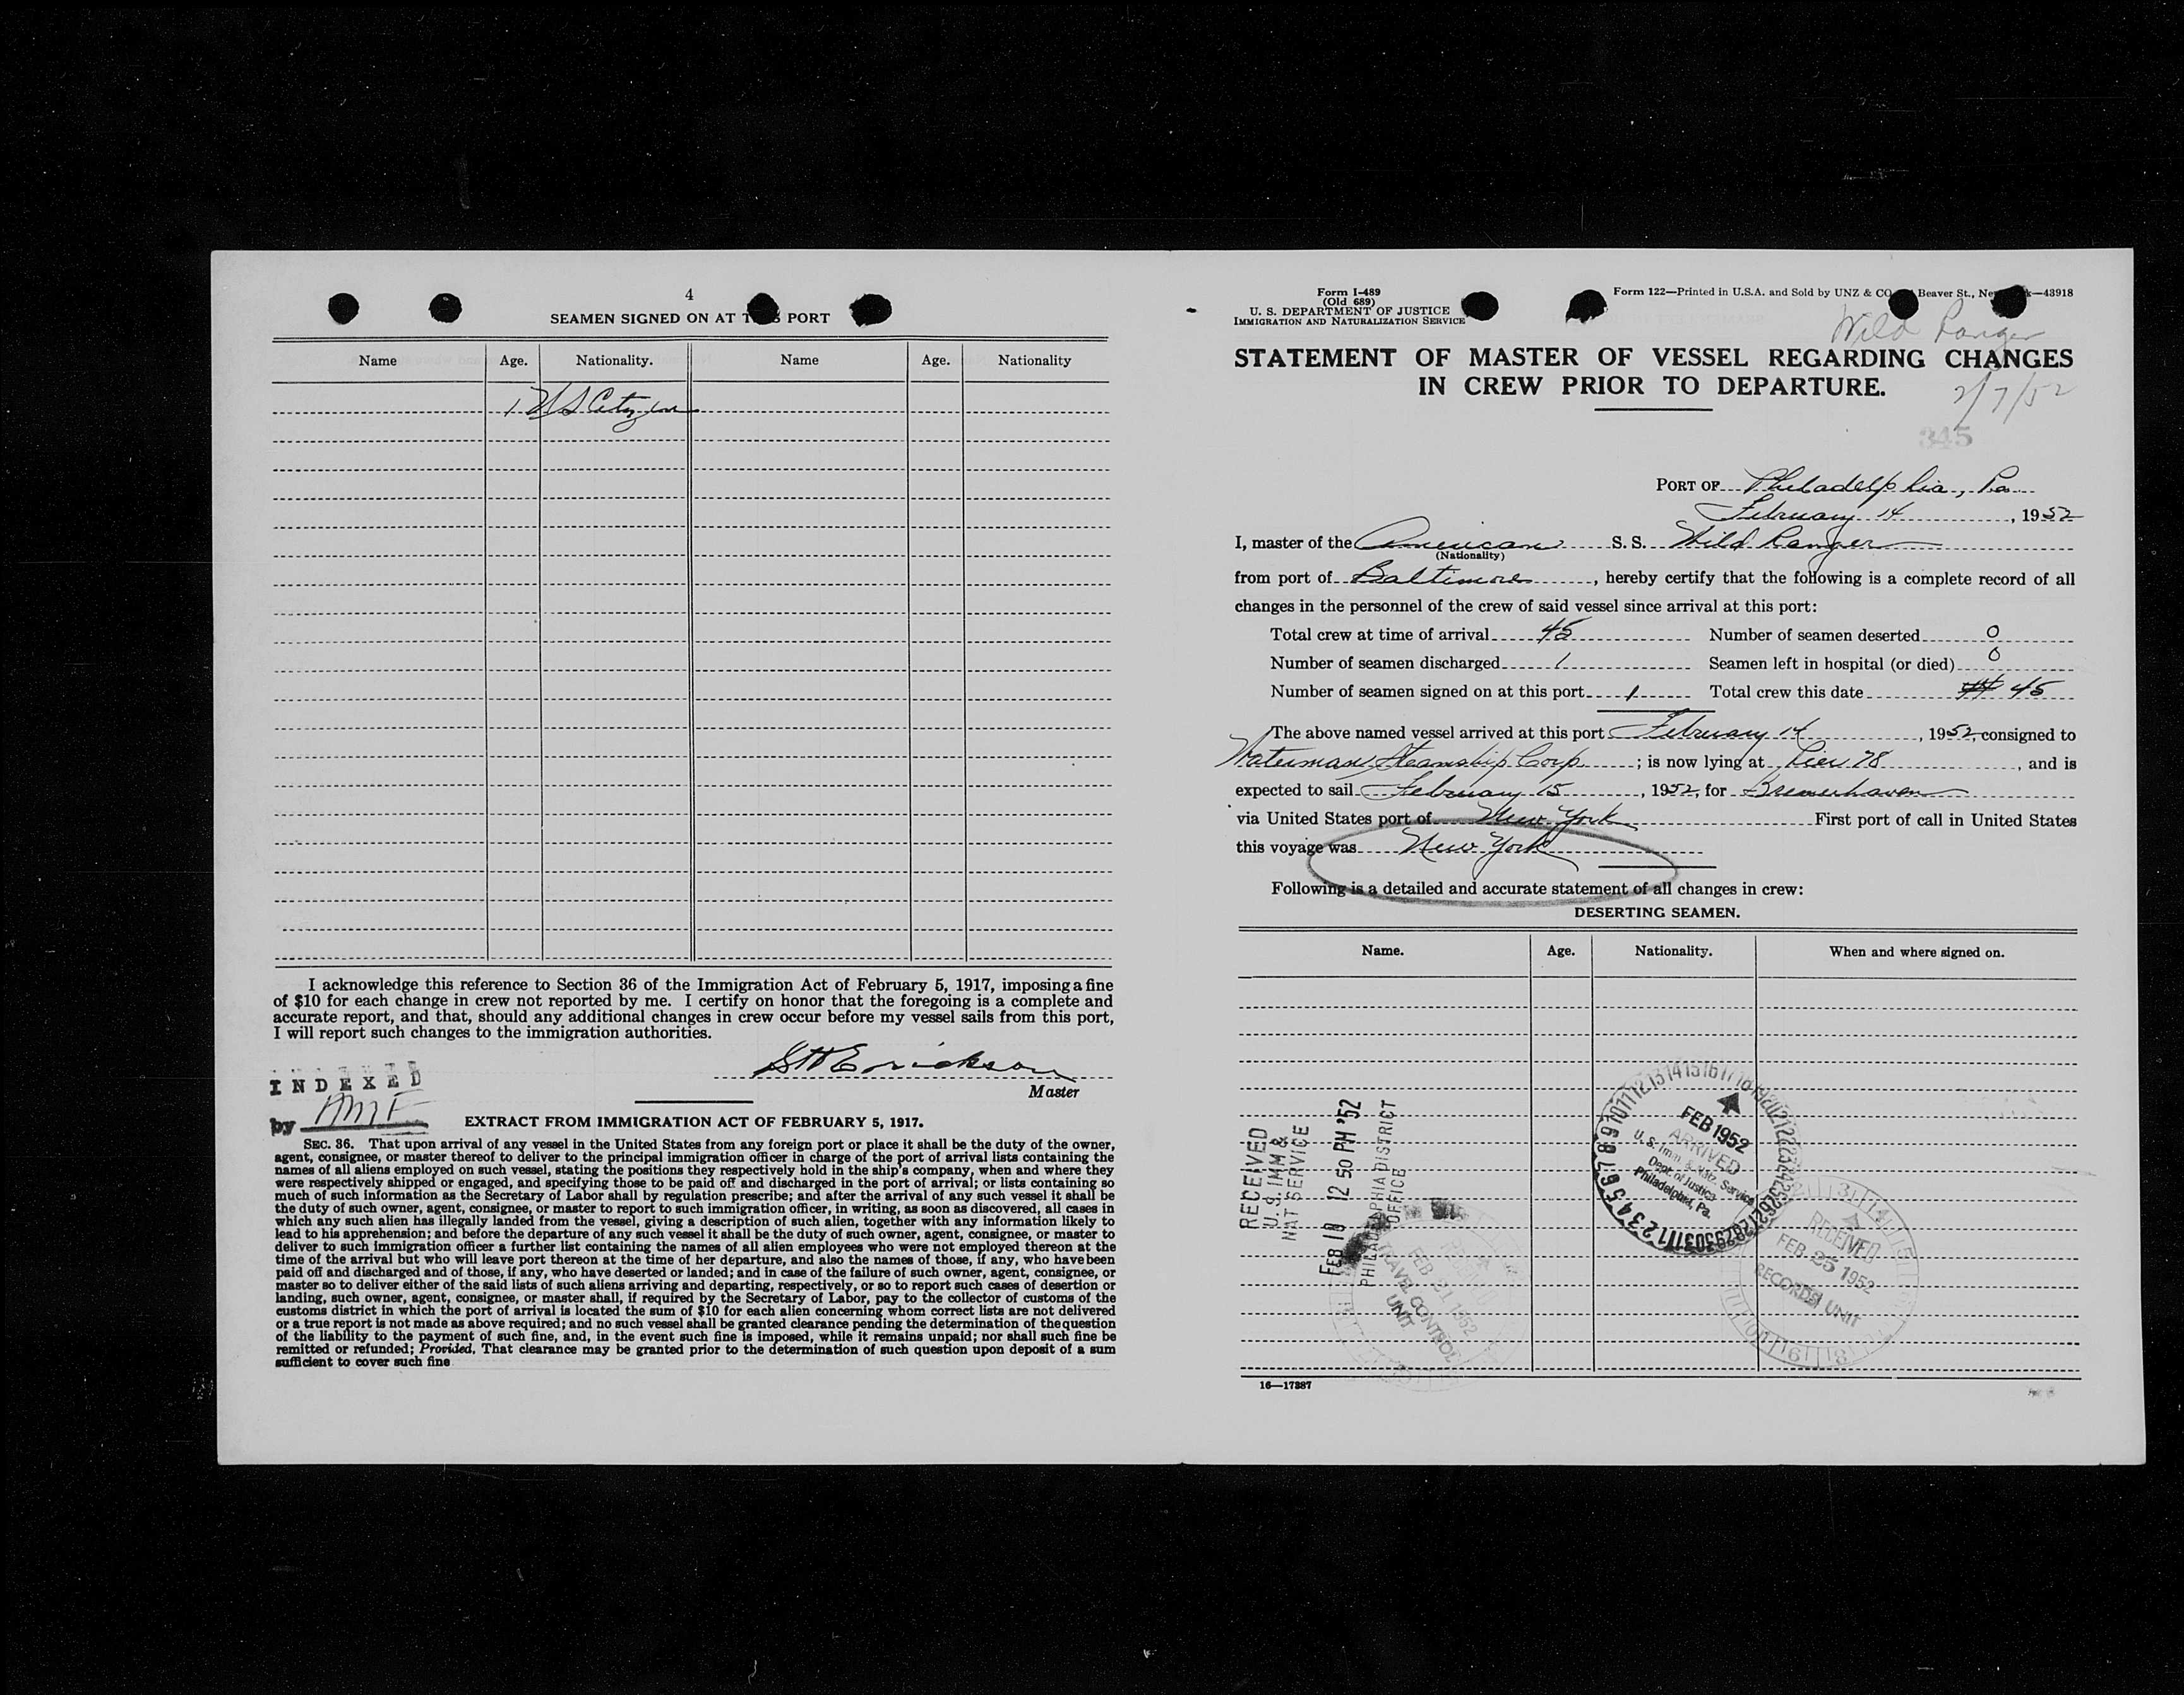 4
SEAMEN SIGNED ON AT PORT
Name Age. Nationality. Name Age. Nationality
1 US Citizen
I acknowledge this reference to Section 36 of the Immigration Act of February 5, 1917, imposing a fine
of $10 for each change in crew not reported by me. I certify on honor that the foregoing is a complete and
accurate report, and that, should any additional changes in crew occur before my vessel sails from this port,
I will report such changes to the immigration authorities.
Erickson
Master
INDEXED
by
EXTRACT FROM IMMIGRATION ACT OF FEBRUARY 5, 1917.
SEC. 36. That upon arrival of any vessel in the United States from any foreign port or place it shall be the duty of the owner,
agent, consignee, or master thereof to deliver to the principal immigration officer in charge of the port of arrival lists containing the
names of all aliens employed on such vessel, stating the positions they respectively hold in the ship's company, when and where they
were respectively shipped or engaged, and specifying those to be paid off and discharged in the port of arrival; or lists containing so
much of such information as the Secretary of Labor shall by regulation prescribe; and after the arrival of any such vessel it shall be
the duty of such owner, agent, consignee, or master to report to such immigration officer, in writing, as soon as discovered, all cases in
which any such alien has illegally landed from the vessel, giving a description of such alien, together with any information likely to
lead to his apprehension; and before the departure of any such vessel it shall be the duty of such owner, agent, consignee, or master to
deliver to such immigration officer a further list containing the names of all alien employees who were not employed thereon at the
time of the arrival but who will leave port thereon at the time of her departure, and also the names of those, if any, who have been
paid off and discharged and of those, if any, who have deserted or landed; and in case of the failure of such owner, agent, consignee, or
master so to deliver either of the said lists of such aliens arriving and departing, respectively, or so to report such cases of desertion or
landing, such owner, agent, consignee, or master shall, if required by the Secretary of Labor, pay to the collector of customs of the
customs district in which the port of arrival is located the sum of $10 for each alien concerning whom correct lists are not delivered
or a true report is not made as above required; and no such vessel shall be granted clearance pending the determination of the question
of the liability to the payment of such fine, and, in the event such fine is imposed, while it remains unpaid; nor shall such fine be
remitted or refunded; Provided, That clearance may be granted prior to the determination of such question upon deposit of a sum
sufficient to cover such fine
Form I-489
(Old 689)
U. S. DEPARTMENT OF JUSTICE
IMMIGRATION AND NATURALIZATION SERVICE
Form 122—Printed in U.S.A. and Sold by UNZ & CO Beaver St., —43918
Wild Ranger
STATEMENT OF MASTER OF VESSEL REGARDING CHANGES
IN CREW PRIOR TO DEPARTURE.
2/7/52
345
PORT OF Philadelphia, Pa
February 14, 1952
I, master of the American S. S. Wild Ranger
(Nationality)
from port of Baltimore, hereby certify that the following is a complete record of all
changes in the personnel of the crew of said vessel since arrival at this port:
Total crew at time of arrival 45 Number of seamen deserted 0
Number of seamen discharged 1 Seamen left in hospital (or died) 0
Number of seamen signed on at this port 1 Total crew this date 45
The above named vessel arrived at this port February 14, 1952, consigned to
Waterman Steamship Corp; is now lying at Pier 78, and is
expected to sail February 15, 1952, for Bremerhaven
via United States port of New York First port of call in United States
this voyage was New York
Following is a detailed and accurate statement of all changes in crew:
DESERTING SEAMEN.
Name. Age. Nationality. When and where signed on.
RECEIVED
U.S. IMM &
NAT SERVICE
FEB 18 12 50 PM '52
PHILADELPHIA DISTRICT
OFFICE
FEB 21 1952
TRAVEL CONTROL
UNIT
1 2 3 4 5 6 7 8 9 10 11 12 13 14 15 16 17 18 19 20 21 22 23 24 25 26 27 28 29 30 31
FEB 1952
ARRIVED
U. S. Imm. & Natz. Service
Dept. of Justice
Philadelphia, Pa.
RECEIVED
FEB 25 1952
RECORDS UNIT
16—17387